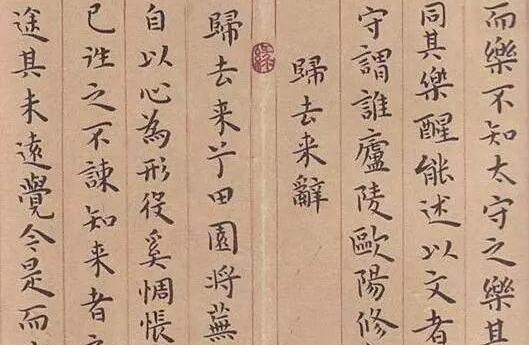 而樂不知太守之樂其
同其樂醒能述以文者
守謂誰廬陵歐陽修
歸去来辭
歸去来兮田園將蕪
自以心為形役奚惆悵
已往之不諫知来者
途其未遠覺今是而